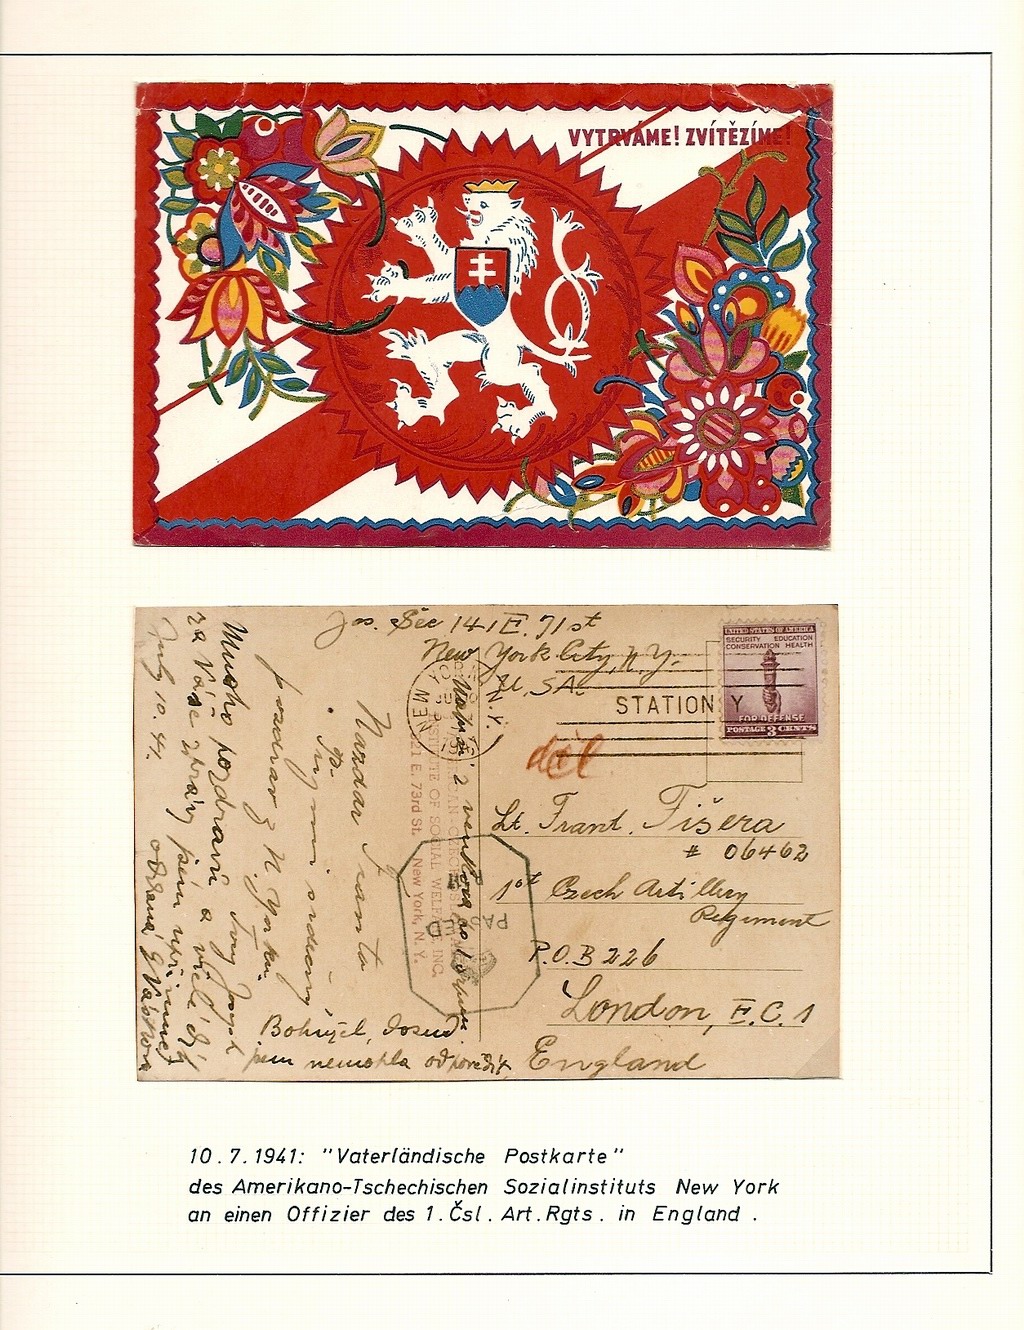 VYTRVÁME! ZVÍTĚZÍME!
Jos. Šec 141 E. 71st
New York City, N.Y.
U.S.A.
UNITED STATES OF AMERICA
SECURITY EDUCATION
CONSERVATION HEALTH
FOR DEFENSE
POSTAGE 3 CENTS
STATION Y
N.Y.
děl
Lt. Frant. Tišera
# 06462
1st Czech Artillery
Regiment
P.O.B 226
London, E.C. 1
England
INSTITUTE OF SOCIAL WELFARE, INC.
121 E. 73rd St. New York, N. Y.
PASSED
Nazdar Franto
srdečný
pozdrav z N. Yorku.
Tvůj
Mnoho pozdravů a
za Vaše zprávy
July 10. 41.
Bohužel, dosud
jsem nemohla odpovědít
10.7.1941: "Vaterländische Postkarte"
des Amerikano-Tschechischen Sozialinstituts New York
an einen Offizier des 1. Čsl. Art. Rgts. in England.